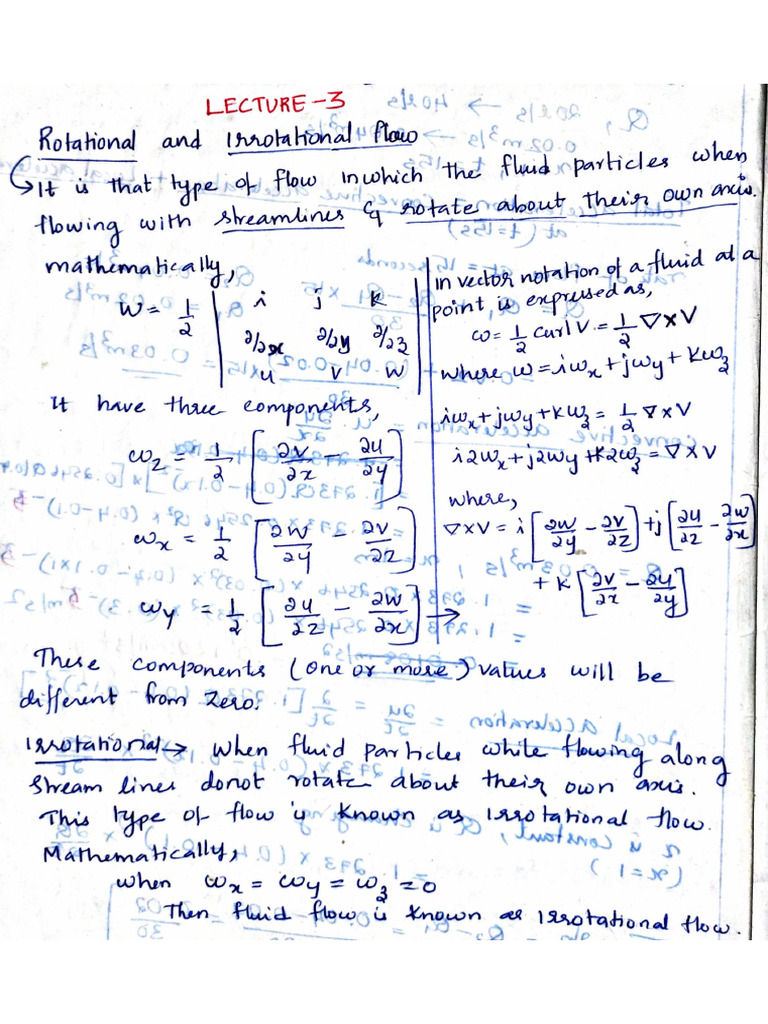 LECTURE-3
Rotational and Irrotational flow
It is that type of flow in which the fluid particles when
flowing with streamlines & rotate about their own axis.
mathematically,
W = 1/2 | i j k
∂/∂x ∂/∂y ∂/∂z
u v w |
It have three components,
ω_z = 1/2 [∂v/∂x - ∂u/∂y]
ω_x = 1/2 [∂w/∂y - ∂v/∂z]
ω_y = 1/2 [∂u/∂z - ∂w/∂x] →
in vector notation of a fluid at a
point, is expressed as,
ω = 1/2 curl V = 1/2 ∇×V
where ω = iω_x + jω_y + kω_z
iω_x + jω_y + kω_z = 1/2 ∇×V
i2ω_x + j2ω_y + k2ω_z = ∇×V
where,
∇×V = i[∂w/∂y - ∂v/∂z] + j[∂u/∂z - ∂w/∂x]
+ k[∂v/∂x - ∂u/∂y]
These components (one or more) values will be
different from zero.
Irrotational → when fluid particles while flowing along
stream lines donot rotate about their own axis.
This type of flow is known as irrotational flow.
Mathematically,
when ω_x = ω_y = ω_z = 0
Then fluid flow is known as irrotational flow.